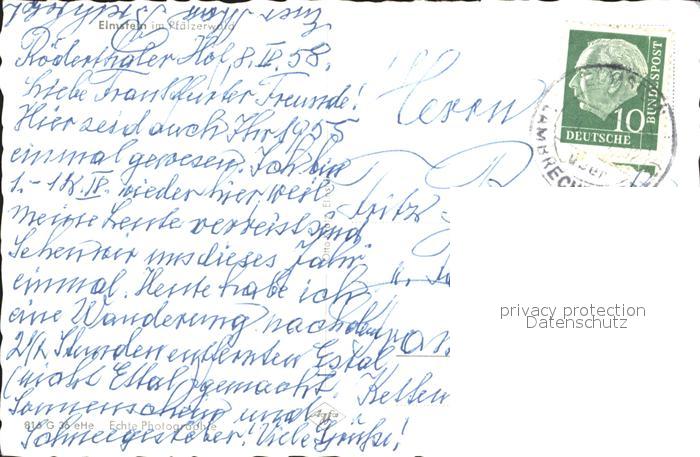 Elmstein im Pfälzerwald
Röderthaler Hof, 8. IV. 58.
Liebe Frankfurter Freunde!
Hier seid auch Ihr 1955
einmal gewesen. Ich bin
1.- 18. IV. wieder hier, weil
meine Leute verreist sind
Sehen wir uns dieses Jahr
einmal. Heute habe ich
eine Wanderung nach dem
2½ Stunden entfernten Estal
(nicht Ettal) gemacht.
Sonnenschein und
Schneegestöber! Viele Grüße!
816 G 36 eHe Echte Photographie
Herrn
Fritz
10
DEUTSCHE
BUNDESPOST
LAMBRECHT
über
privacy protection
Datenschutz